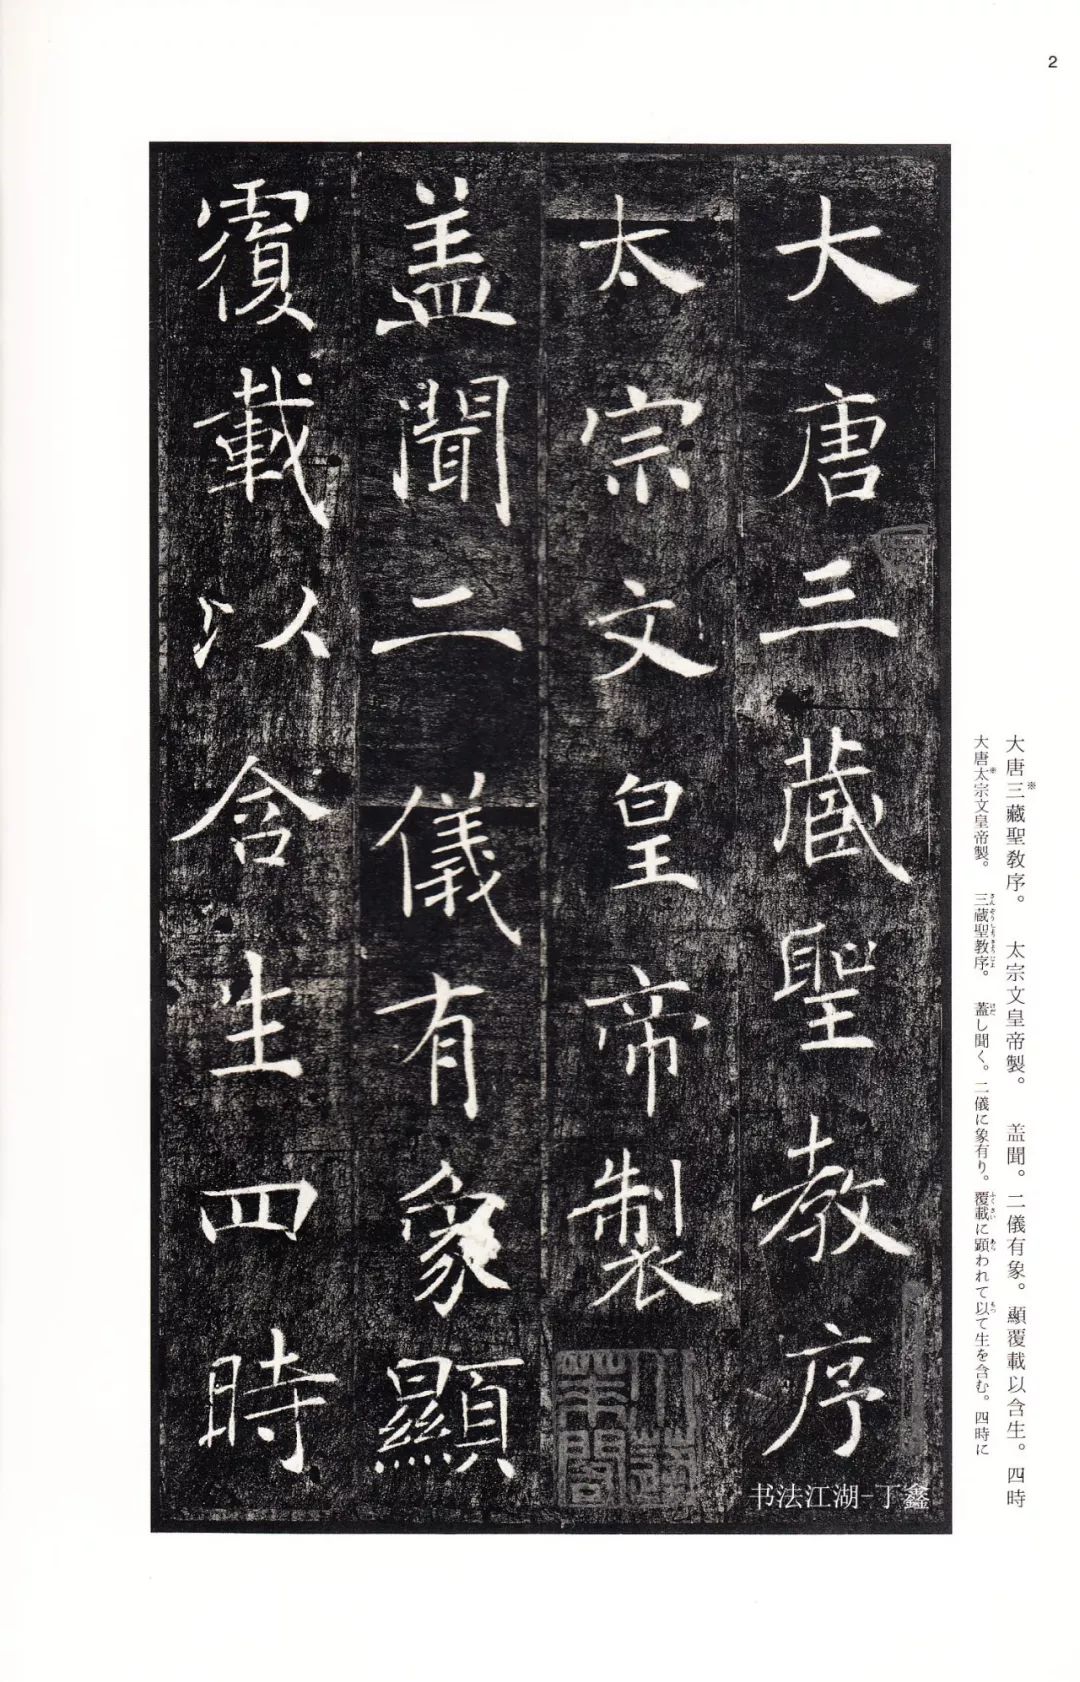 2
大唐三藏聖教序
太宗文皇帝製
盖聞二儀有象顯
覆載以含生四時
大唐三藏聖教序。 太宗文皇帝製。 盖聞。二儀有象。顯覆載以含生。四時
※
大唐太宗文皇帝製。 三蔵聖教序。 蓋し聞く。二儀に象有り。覆載に顕われて以て生を含む。四時に
※
书法江湖-丁鑫